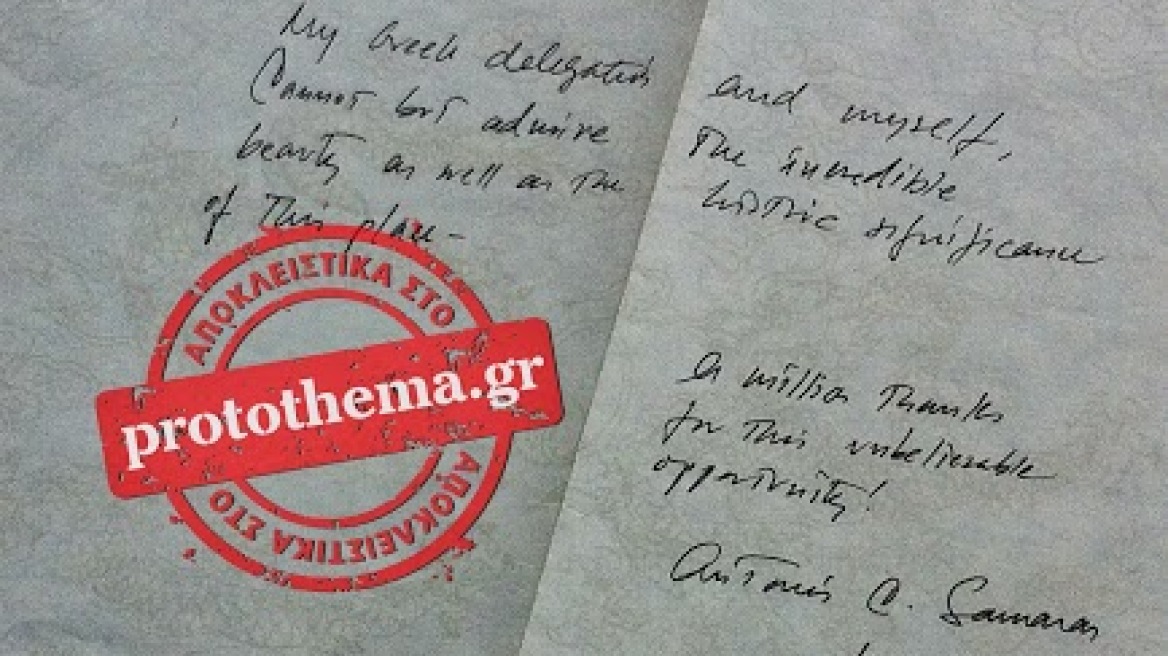 My Greek delegation and myself,
Cannot but admire the incredible
beauty as well as the historic significance
of this place-
a million thanks
for this unbelievable
opportunity!
Antonis C. Samaras
ΑΠΟΚΛΕΙΣΤΙΚΑ ΣΤΟ
protothema.gr
ΑΠΟΚΛΕΙΣΤΙΚΑ ΣΤΟ